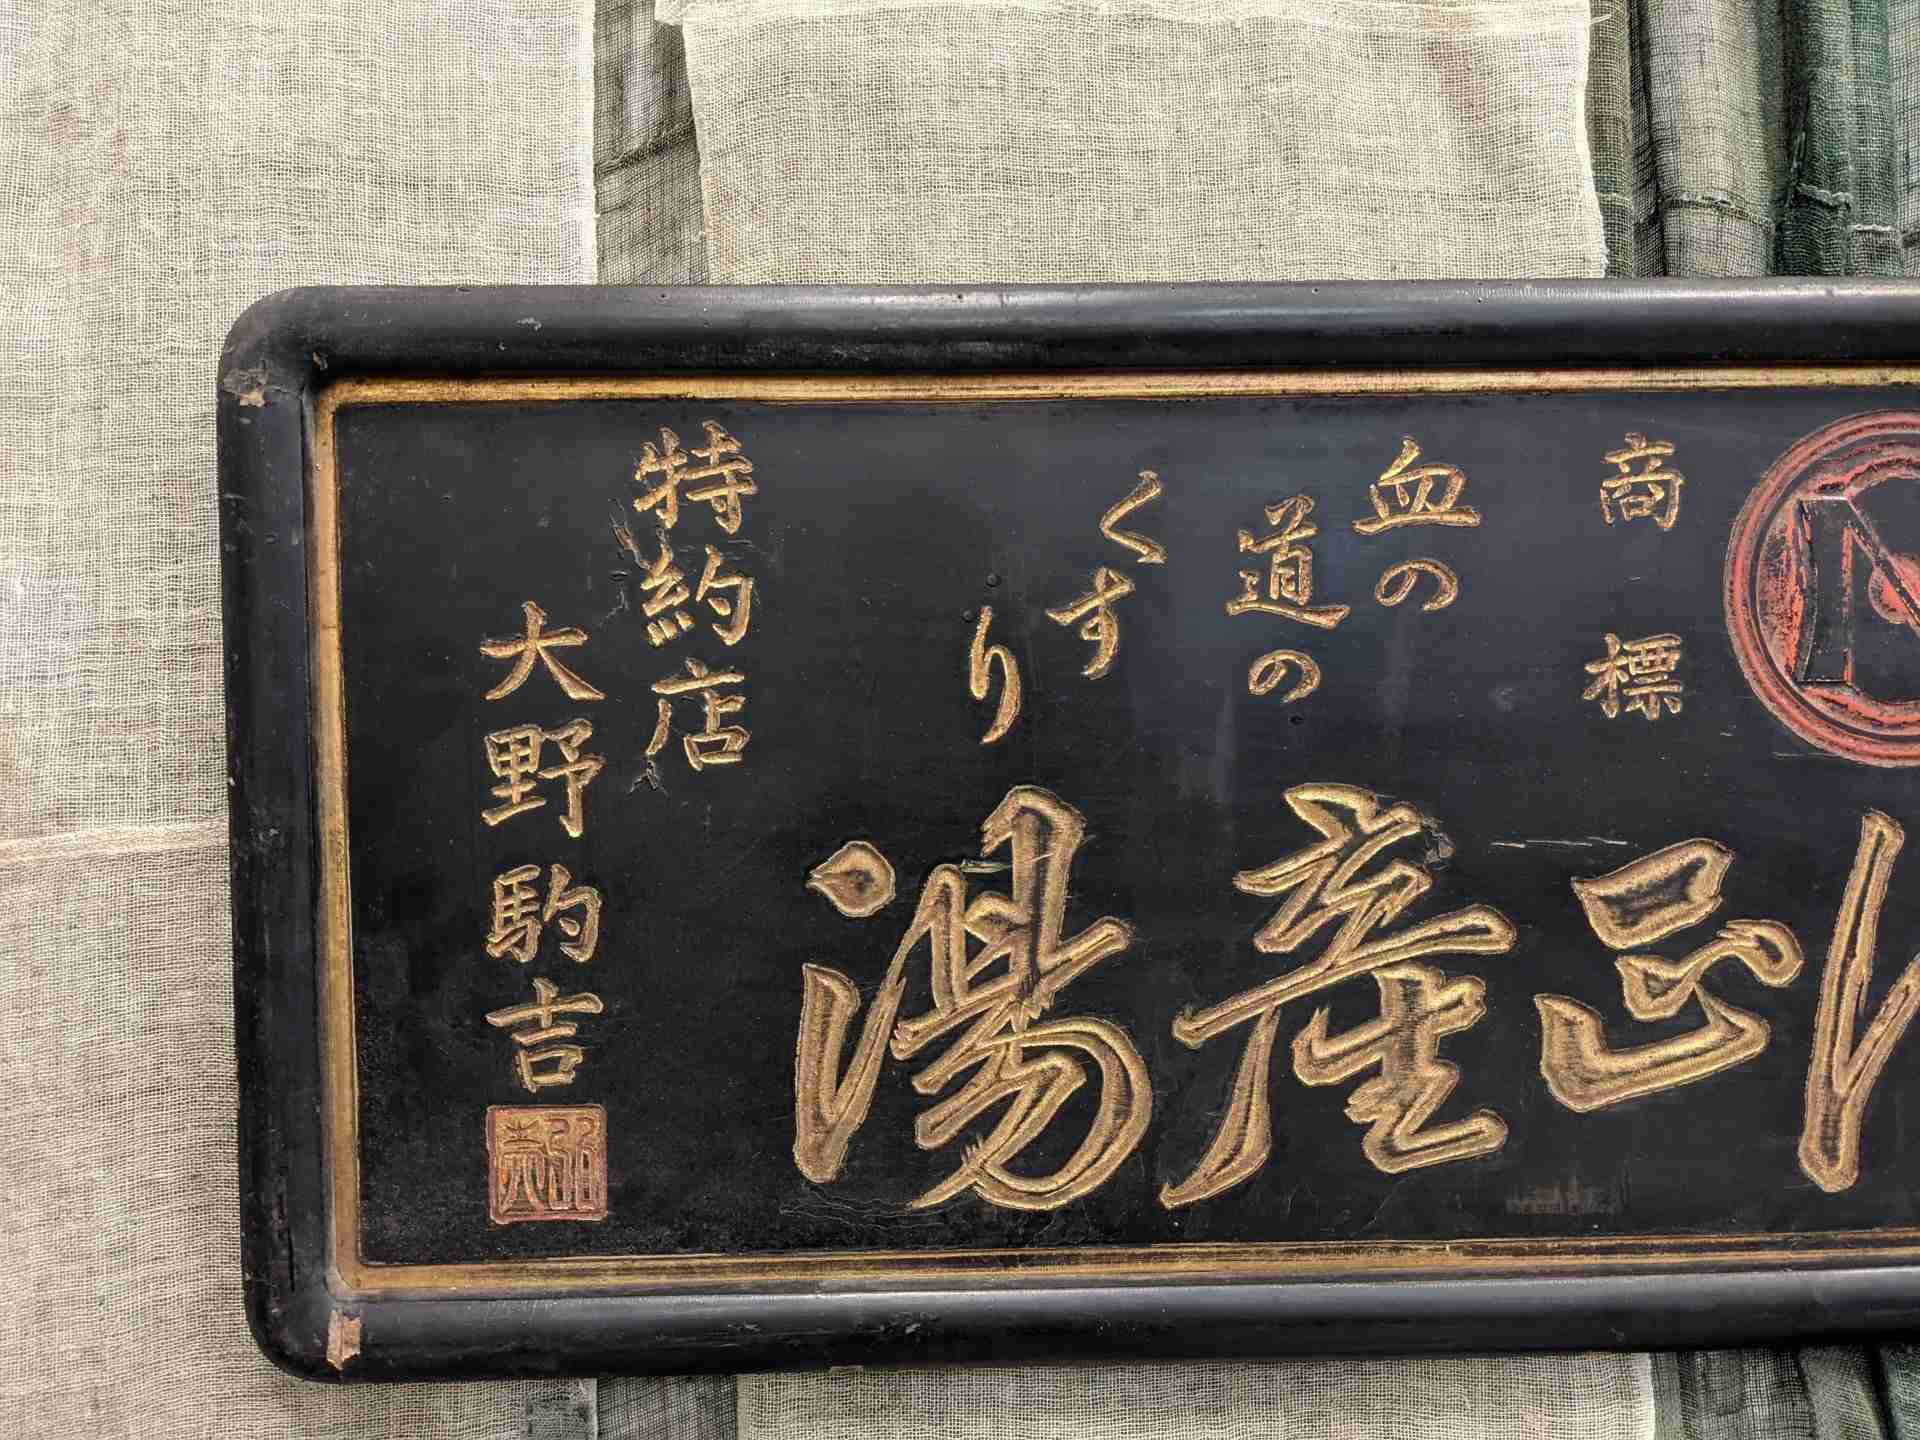 商標
血の
道の
くすり
正産湯
特約店
大野駒吉